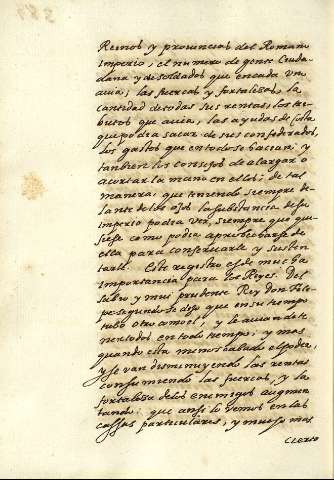 Reinos y provincias del Romano
imperio, el numero de gente Ciuda-
dana y de soldados que en cada uno
auia; las fuercas y fortalezas, la
cantidad de todas sus rentas, los tri-
butos que auia, las ayudas de costa
que podia sacar de sus confederados,
los gastos que en todo se hacian; y
tambien los consejos de alargar o
acortar la mano en ellos; de tal
manera, que teniendo siempre de-
lante de los ojos la substancia de su
imperio podia ver, siempre que qui-
siese como poder aprobecharse de
ella para conseruarle y susten
tarle. Este registro es de mucha
importancia para los Reyes. Del
sabio y mui prudente Rey don Feli-
pe segundo se dijo que en su tiempo
tubo otro como el, y le auian de te-
ner todos en todo tiempo; y mas
quando esta menoscabado el poder,
y se van disminuyendo las rentas
consumiendo las fuercas, y la
fortaleza de los enemigos augmen
tando: que ansi lo vemos en las
cassas particulares, y mucho mas
cierto